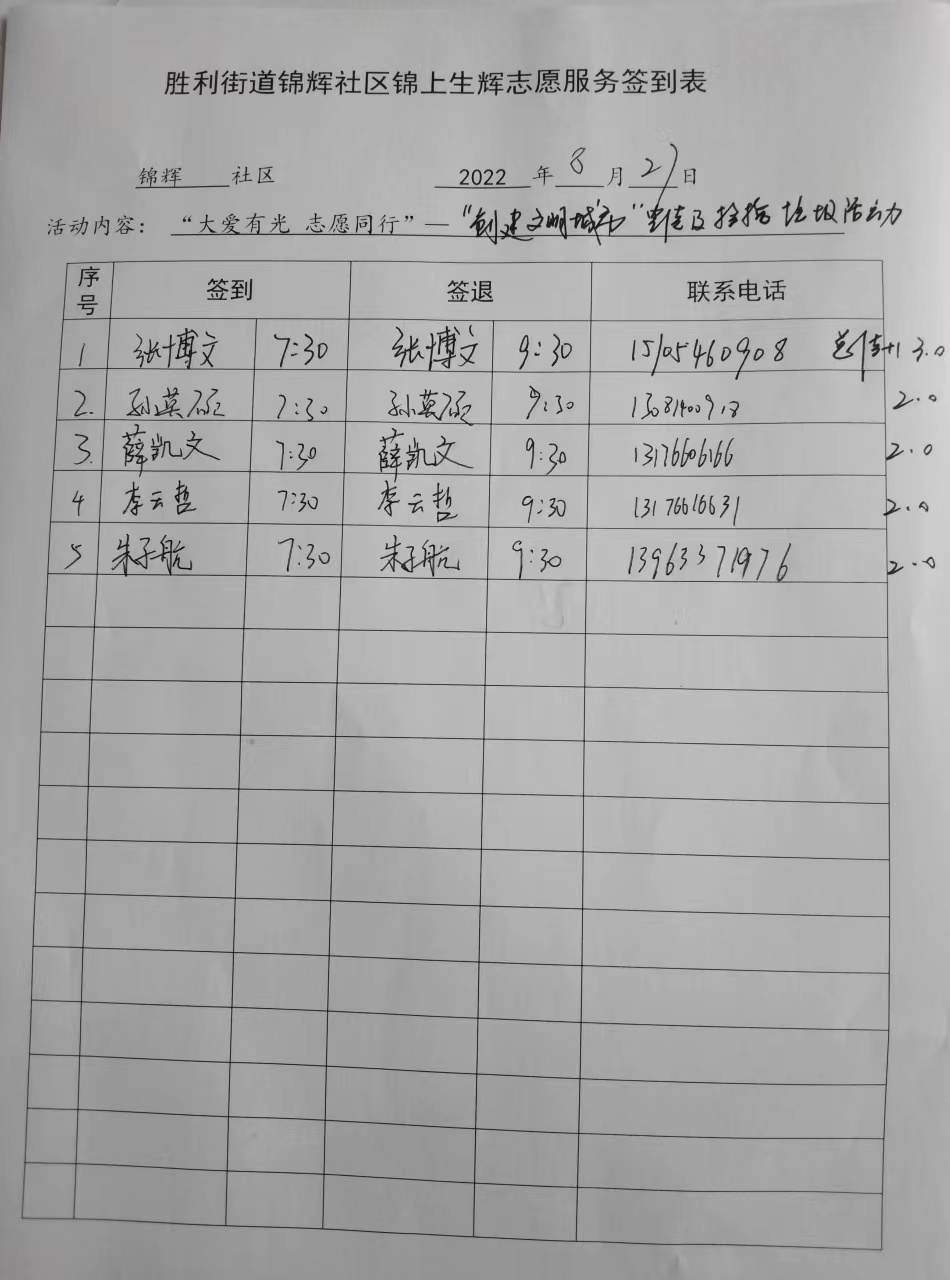 胜利街道锦辉社区锦上生辉志愿服务签到表
锦辉 社区 2022 年 8 月 27 日
活动内容：“大爱有光 志愿同行”—“创建文明城市” 及捡拾垃圾活动
序号 签到 签退 联系电话
1 张博文 7:30 张博文 9:30 15105460908 3.0
2. 孙英硕 7:30 孙英硕 9:30 13081400918 2.0
3. 薛凯文 7:30 薛凯文 9:30 13176606166 2.0
4 李云哲 7:30 李云哲 9:30 13176616631 2.0
5 朱子航 7:30 朱子航 9:30 13963371976 2.0